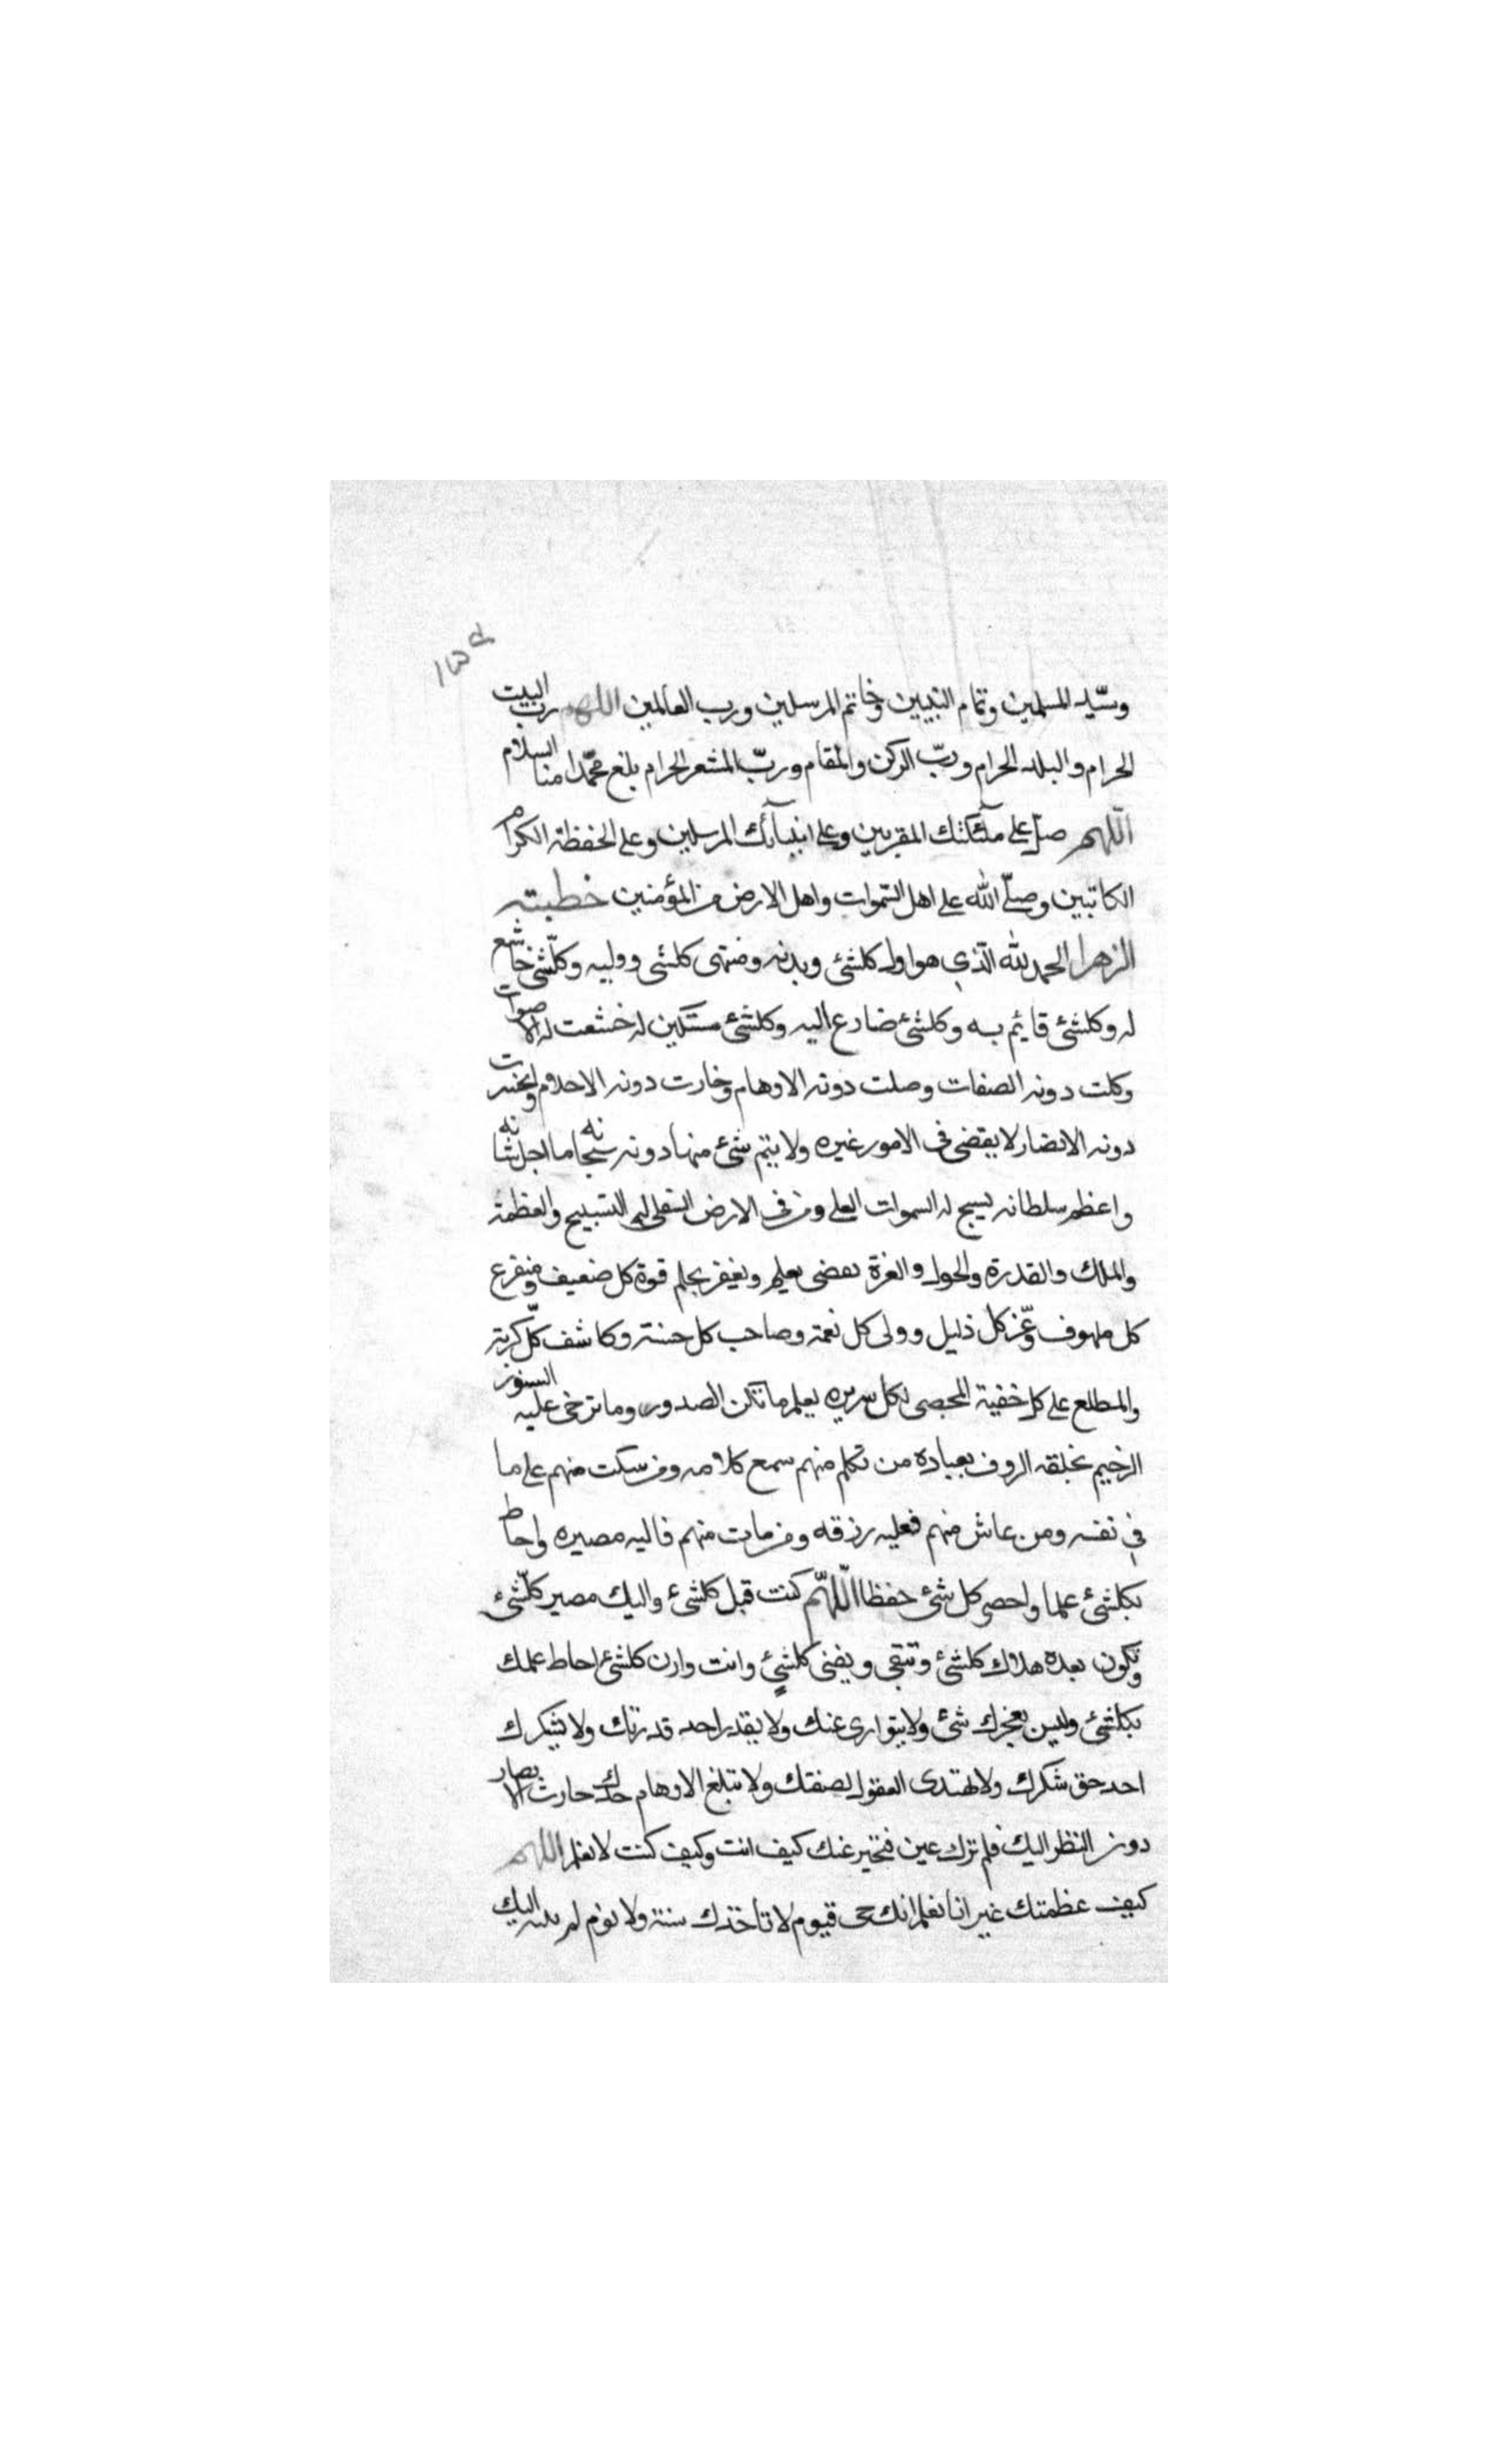 ١٣٩
وسيّد المسلمين وتمام النبيين وخاتم المرسلين ورب العالمين اللهم رب البيت
الحرام والبلد الحرام وربّ الركن والمقام وربّ المشعر الحرام بلغ محمّدا منا السلام
اللّهم صلّ على ملٓئكتك المقربين وعلى انبيآئك المرسلين وعلى الحفظة الكرام
الكاتبين وصلّى اللّه على اهل السّموات واهل الارض من المؤمنين خطبته
الزهرا الحمد للّه الّذي هو اول كلشئ وبدئه ومنتهى كلشئ ووليه وكلّشئ خاشع
له وكلشئ قائم به وكلشئ ضارع اليه وكلشئ مستكين له خشعت له الاصوات
وكلت دونه الصفات وضلت دونه الاوهام وحارت دونه الاحلام وانحسرت
دونه الابصار لا يقضى فى الامور غيره ولا يتم شئ منها دونه سبحانه ما اجل شانه
واعظم سلطانه يسبح له السموات العلى ومن فى الارض السفلى له التسبيح والعظمة
والملك والقدرة والحول والعزة يقضى بعلم ويغفر بحلم قوة كل ضعيف ومفزع
كل ملهوف وعّز كل ذليل وولى كل نعمة وصاحب كل حسنة وكاشف كلّ كربة
والمطلع على كل خفية المحصى لكل سريره يعلم ما تكن الصدور وما ترخى عليه الستور
الرحيم بخلقه الروف بعباده من تكلم منهم سمع كلامه ومن سكت منهم علم ما
في نفسه ومن عاش منهم فعليه رزقه ومن مات منهم فاليه مصيره واحاط
بكلشئ علما واحصى كل شئ حفظا اللّهّم كنت قبل كلشئ واليك مصير كلّشئ
وتكون بعده هلاك كلشئ وتبقى ويفنى كلشئ وانت وارث كلشئ احاط علمك
بكلشئ وليس يعجزك شئ ولا يتوارى عنك ولا يقدر احد قدرتك ولا يشكرك
احد حق شكرك ولا تهتدى العقول لصفتك ولا تبلغ الاوهام حدك حارت الابصار
دون النظر اليك فلم ترك عين فتخبر عنك كيف انت وكيف كنت لا نعلم اللهم
كيف عظمتك غير انا نعلم انك حى قيوم لا تاخذك سنة ولا نوم لم ينته اليك